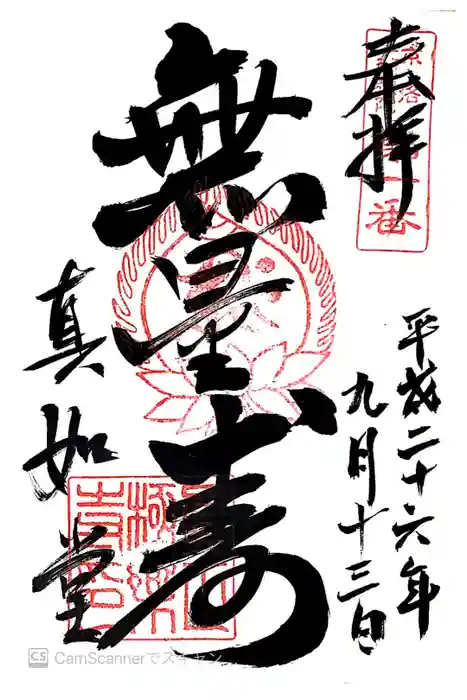 奉拝
平成二十六年
九月十三日
無量寿
真如堂
第一番
CamScannerでスキャン